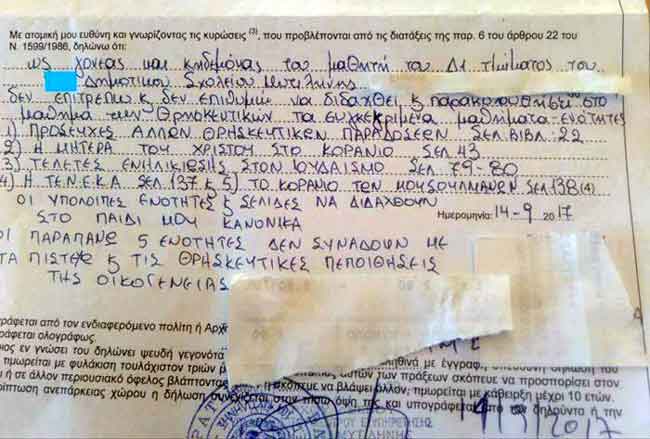 Με ατομική μου ευθύνη και γνωρίζοντας τις κυρώσεις (3), που προβλέπονται από τις διατάξεις της παρ. 6 του άρθρου 22 του
Ν. 1599/1986, δηλώνω ότι:
ως γονέας και κηδεμόνας του μαθητή του Δ1 τμήματος του
Δημοτικού Σχολείου Μυτιλήνης
δεν επιτρέπω & δεν επιθυμώ να διδαχθεί & παρακολουθήσει στο
μάθημα των Θρησκευτικών τα συγκεκριμένα μαθήματα-ενότητες
1) ΠΡΟΣΕΥΧΕΣ ΑΛΛΩΝ ΘΡΗΣΚΕΥΤΙΚΩΝ ΠΑΡΑΔΟΣΕΩΝ ΣΕΛ ΒΙΒΛ: 22
2) Η ΜΗΤΕΡΑ ΤΟΥ ΧΡΙΣΤΟΥ ΣΤΟ ΚΟΡΑΝΙΟ ΣΕΛ 43
3) ΤΕΛΕΤΕΣ ΕΝΗΛΙΚΙΩΣΗΣ ΣΤΟΝ ΙΟΥΔΑΙΣΜΟ ΣΕΛ 79-80
4) Η ΤΕ.Ν.Ε.Κ.Α ΣΕΛ 137 & 5) ΤΟ ΚΟΡΑΝΙΟ ΤΩΝ ΜΟΥΣΟΥΛΜΑΝΩΝ ΣΕΛ 138 (4)
ΟΙ ΥΠΟΛΟΙΠΕΣ ΕΝΟΤΗΤΕΣ & ΣΕΛΙΔΕΣ ΝΑ ΔΙΔΑΧΘΟΥΝ
ΣΤΟ ΠΑΙΔΙ ΜΟΥ ΚΑΝΟΝΙΚΑ
Ημερομηνία: 14-9 2017
ΟΙ ΠΑΡΑΠΑΝΩ 5 ΕΝΟΤΗΤΕΣ ΔΕΝ ΣΥΝΑΔΟΥΝ ΜΕ
ΤΑ ΠΙΣΤΕΥΩ & ΤΙΣ ΘΡΗΣΚΕΥΤΙΚΕΣ ΠΕΠΟΙΘΗΣΕΙΣ
ΤΗΣ ΟΙΚΟΓΕΝΕΙΑΣ
γράφεται από τον ενδιαφερόμενο πολίτη ή Αρχ
γράφεται ολογράφως.
οιος εν γνώσει του δηλώνει ψευδή γεγονότα
τιμωρείται με φυλάκιση τουλάχιστον τριών μ
ή σε άλλον περιουσιακό όφελος βλάπτοντας
ρίπτωση ανεπάρκειας χώρου η δήλωση συνεχίζεται στην πίσω όψη της και υπογράφεται από τον δηλούντα ή την
ληθινά με έγγραφη υπεύθυνη δήλωση του
αυτών των πράξεων σκόπευε να προσπορίσει στον
ή σκόπευε να βλάψει άλλον, τιμωρείται με κάθειρξη μέχρι 10 ετών.
ΜΥΤΙΛΗΝΗΣ